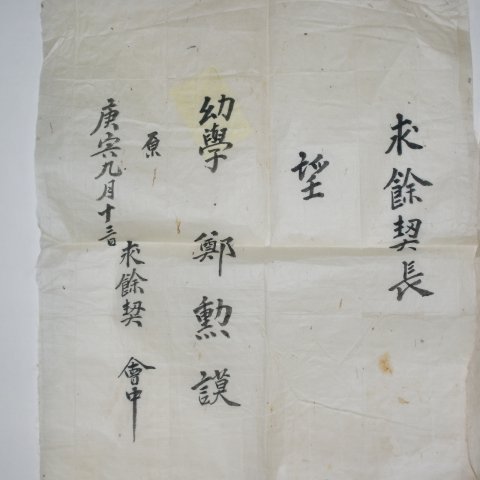 求餘契長
望
幼學 鄭勳謨
原
庚寅九月十三日 求餘契 會中